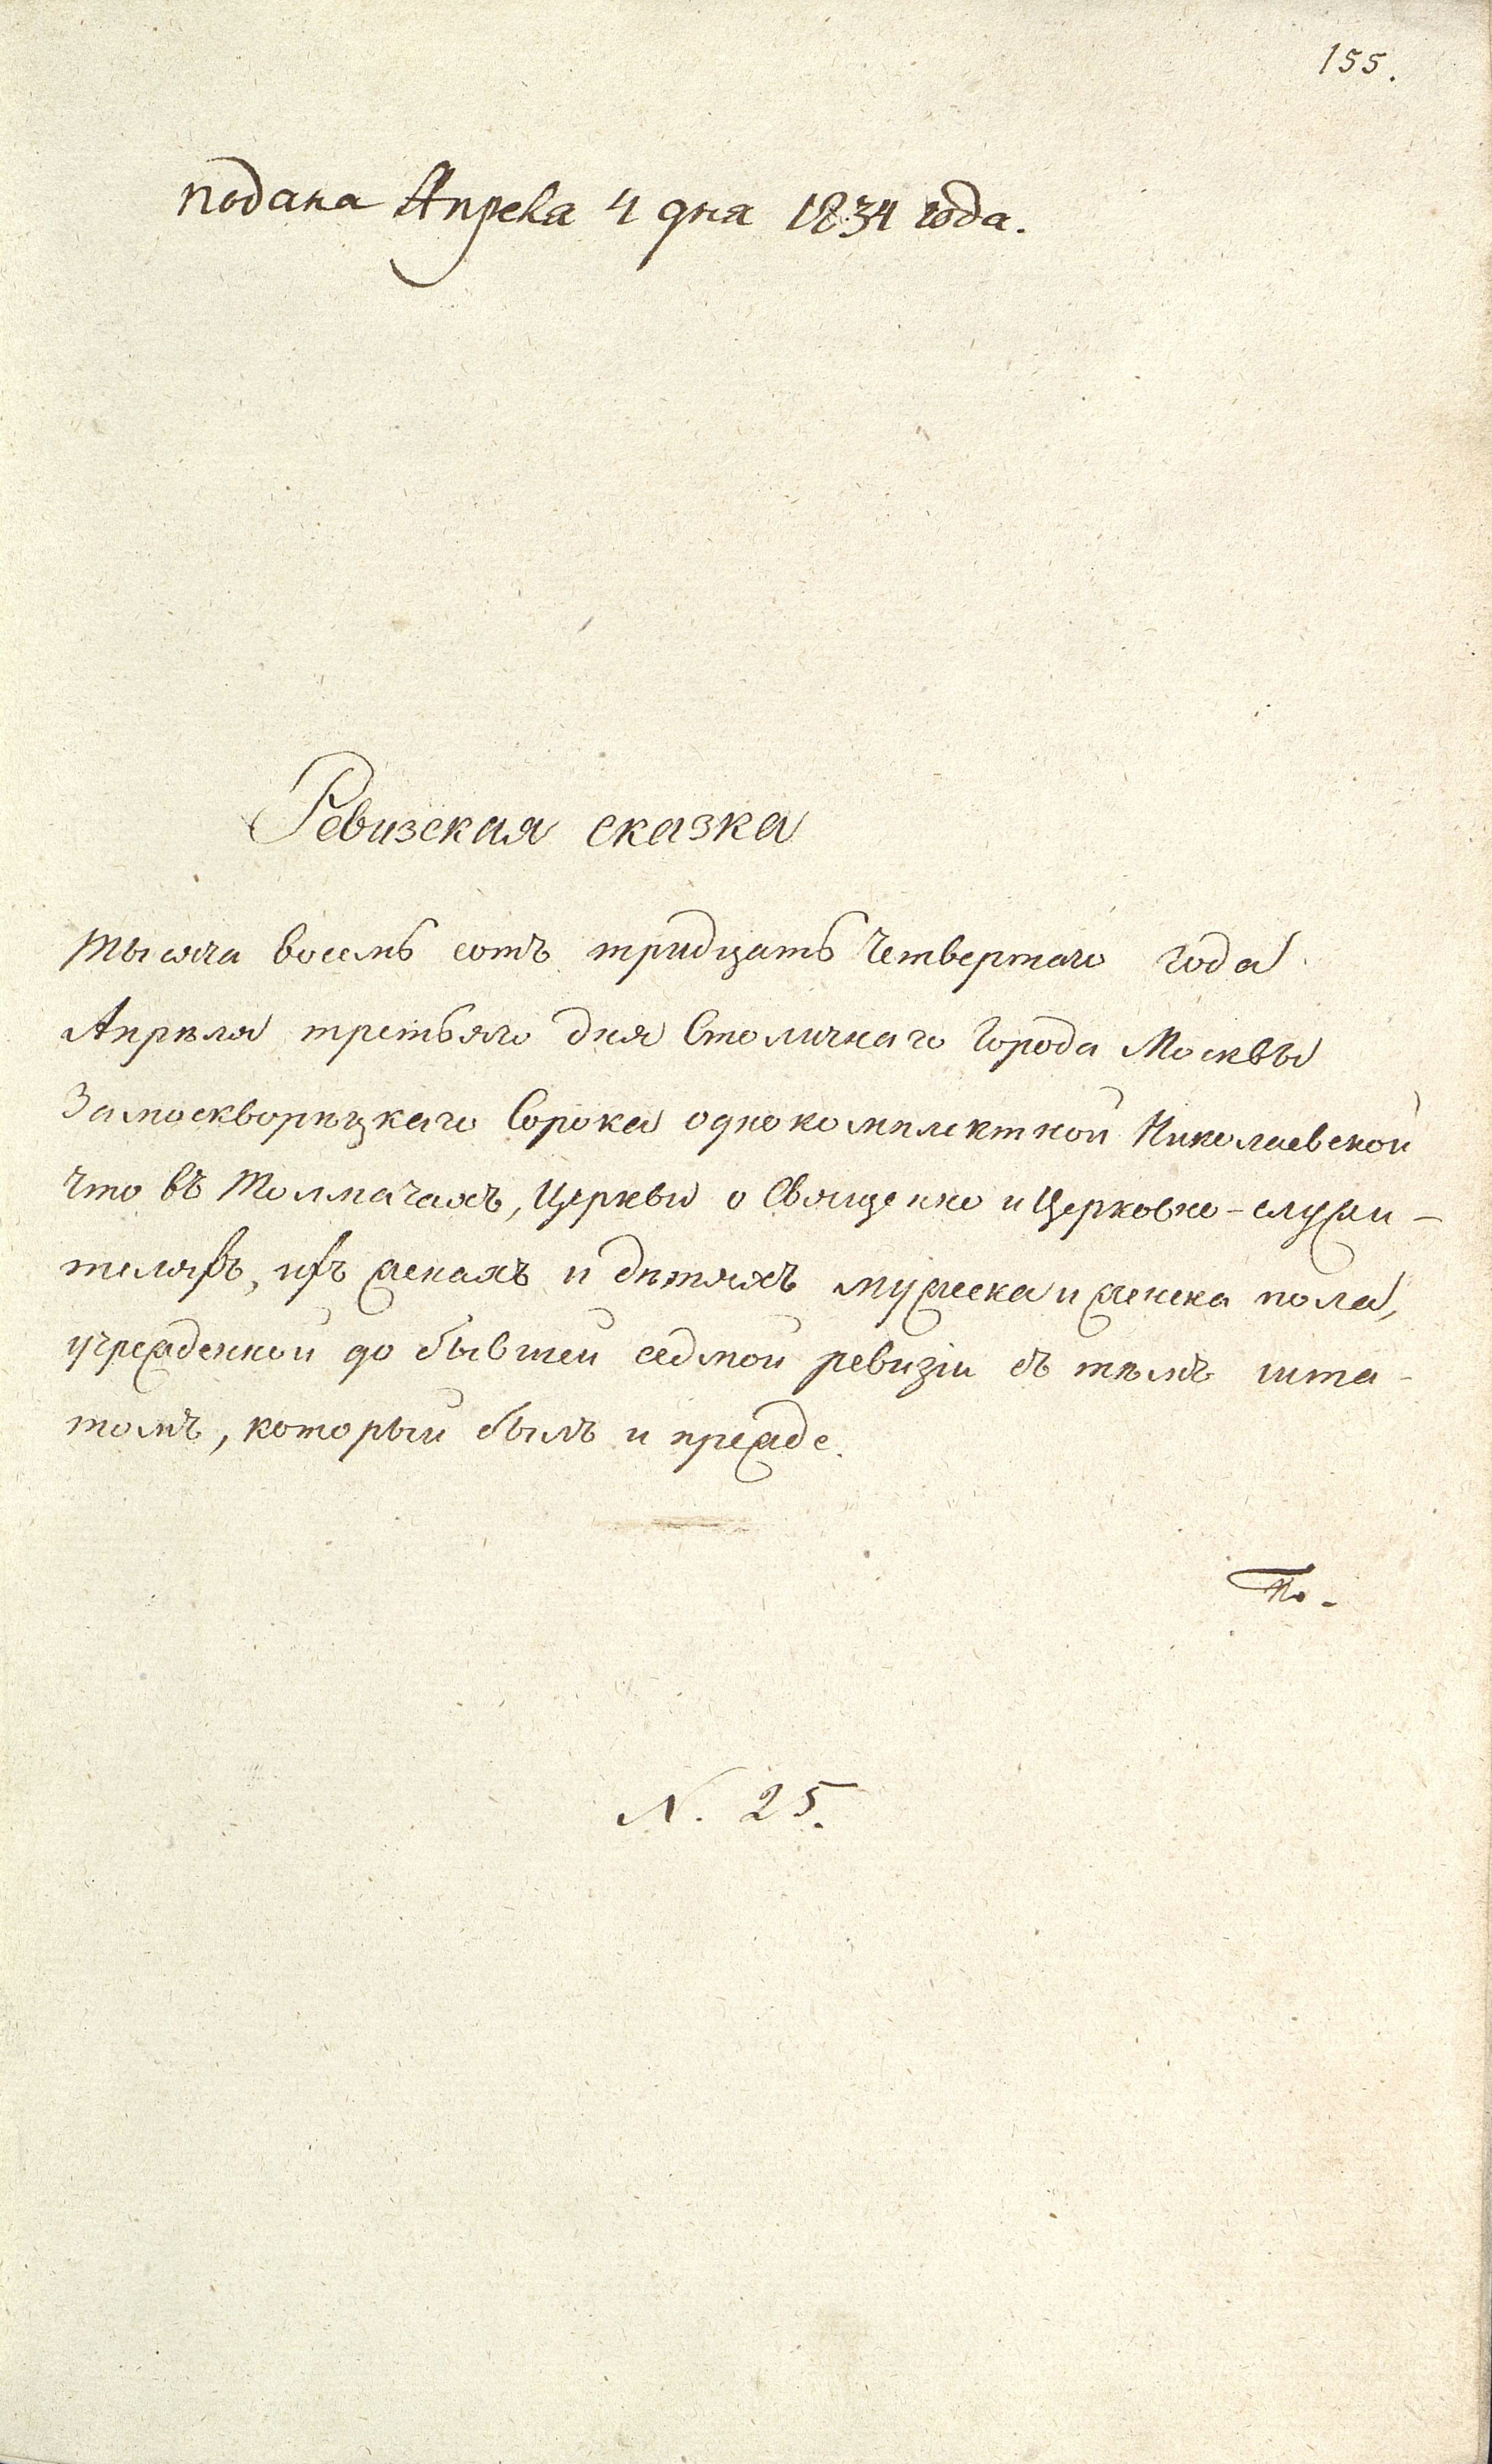 155.
подана Апреля 4 дня 1834 года.
Ревизская сказка
тысяча восемь сотъ тридцать четвертаго года
Апрѣля третьяго дня Столичнаго Города Москвы
Замоскворѣцкаго Сорока однокомплектной Николаевской
что въ Толмачахъ, Церкви о Священно и Церковно-служи-
теляхъ, ихъ женахъ и дѣтяхъ мужеска и женска пола,
учрежденной до бывшей седмой ревизіи съ тѣмъ шта-
томъ, который былъ и прежде.
По-
N. 25.